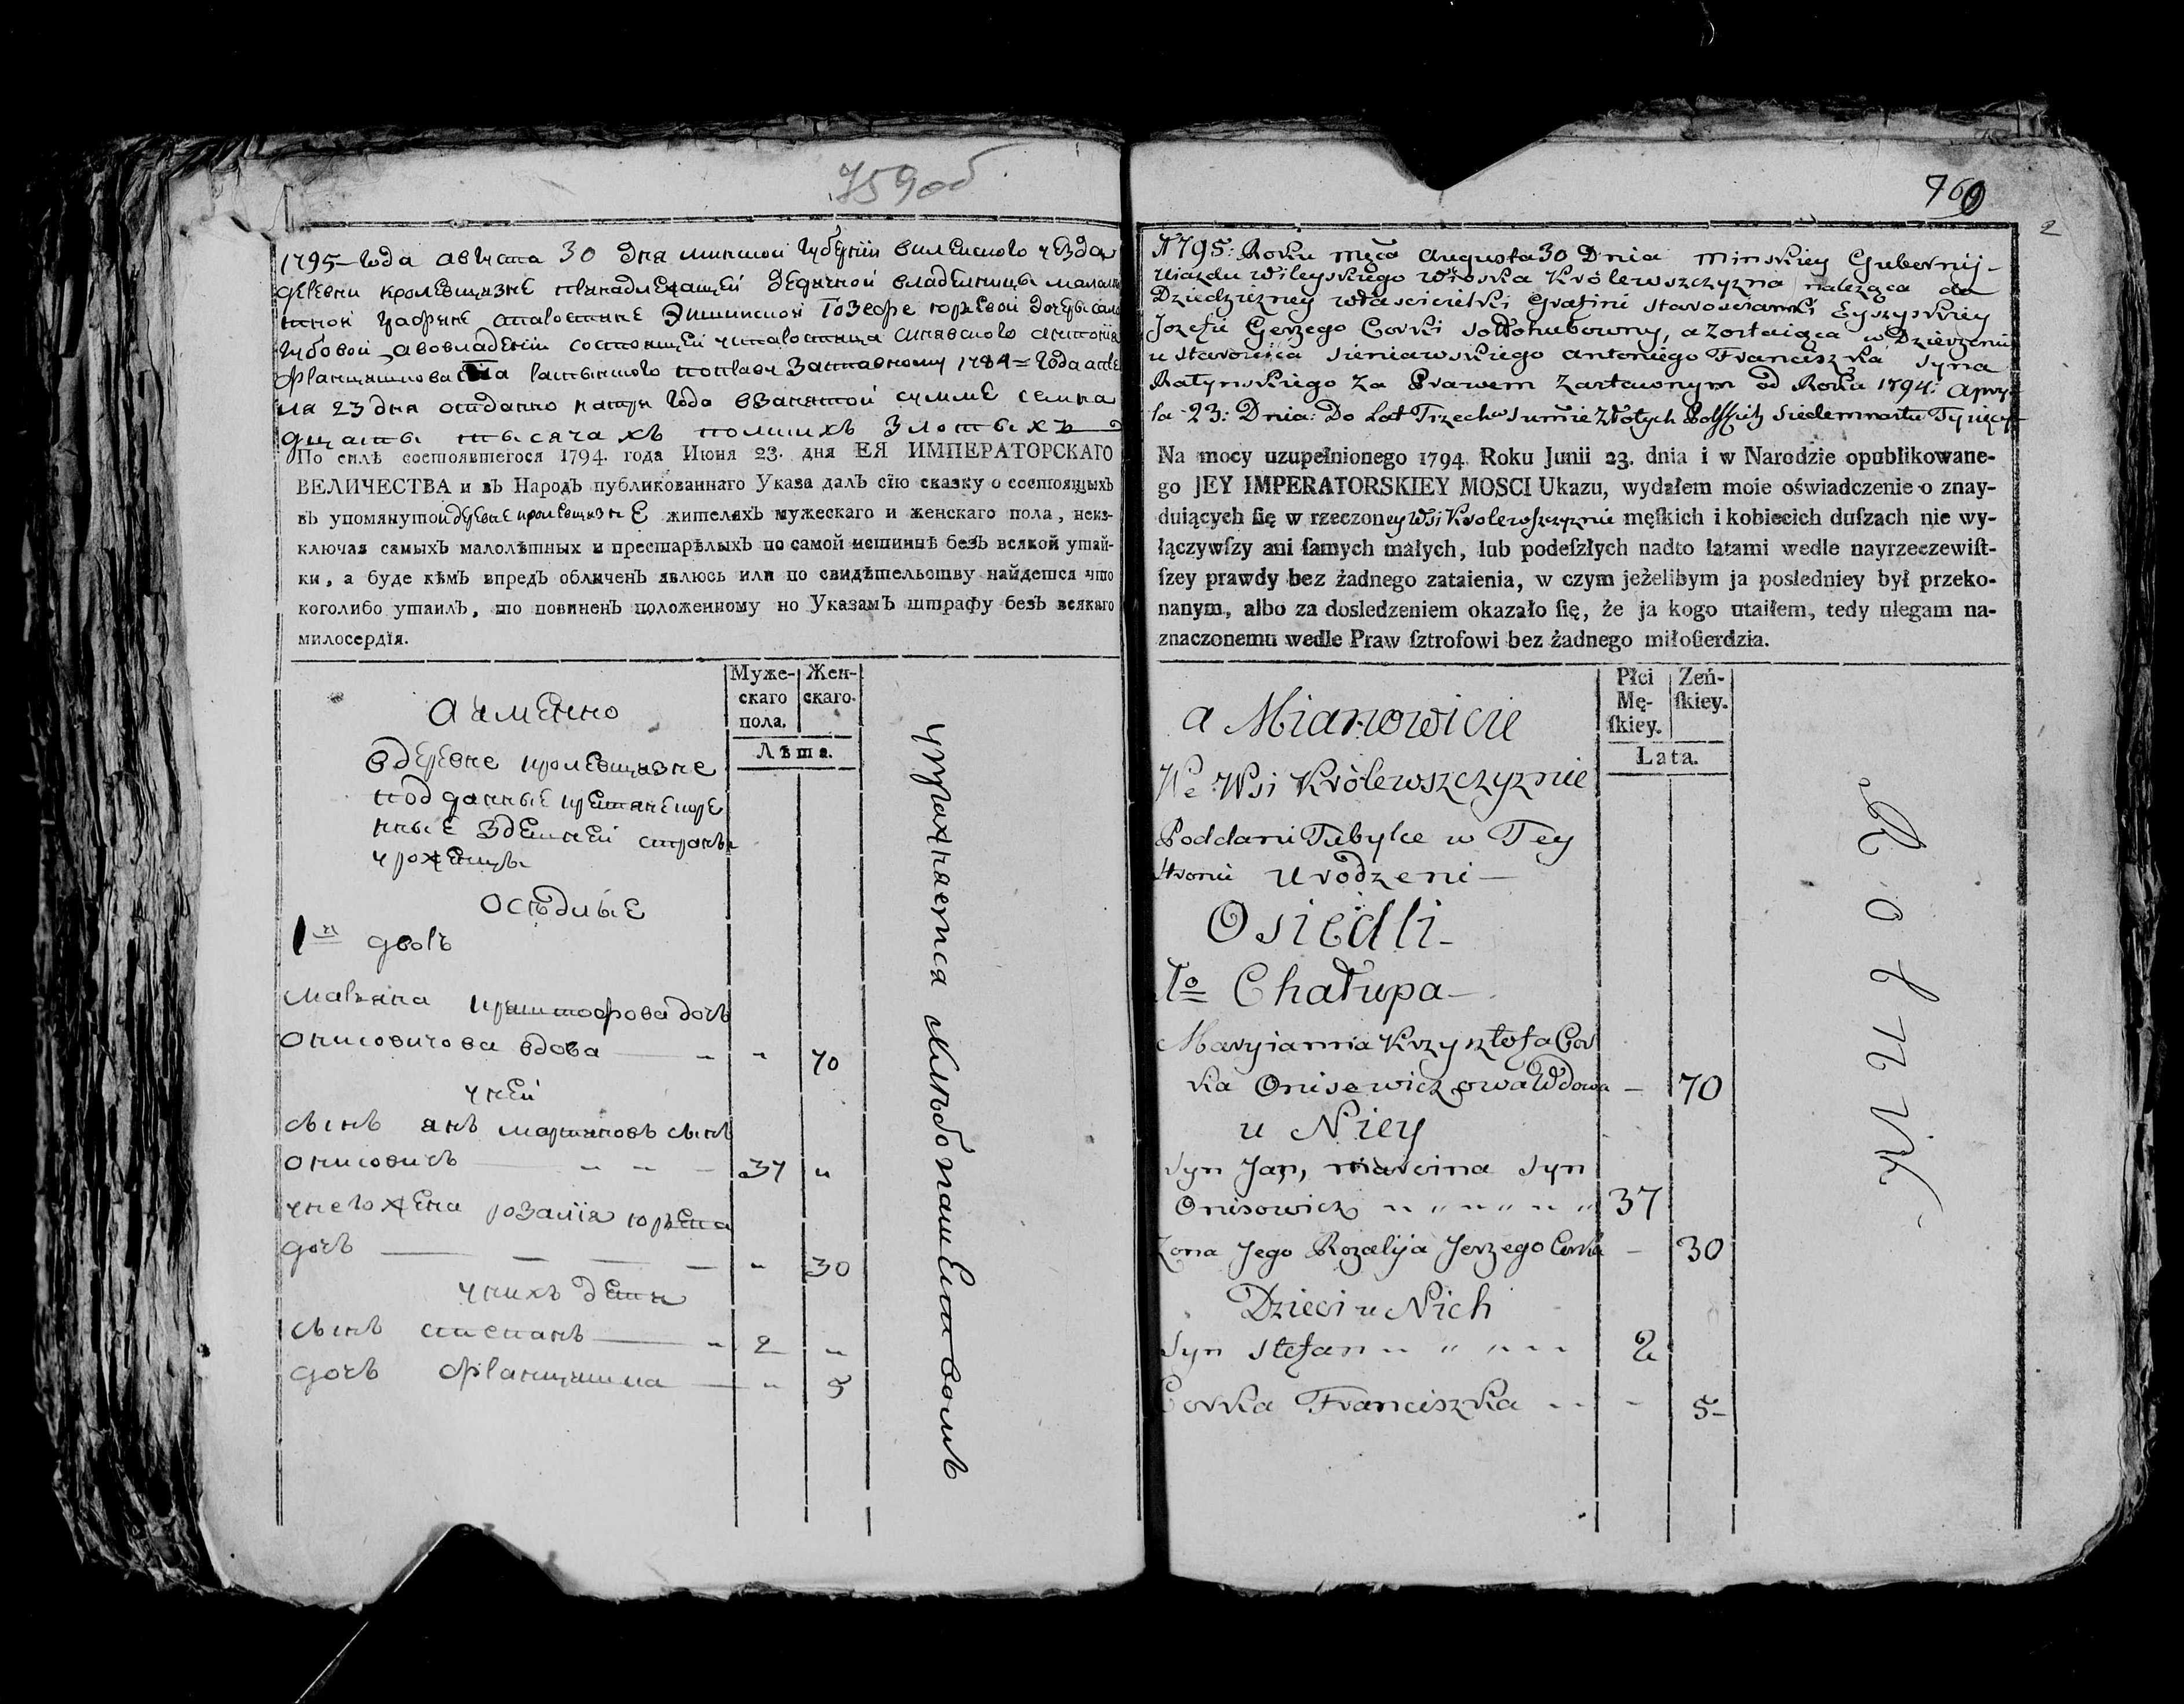 759 об
1795 года августа 30 дня минской губернии вилейского уезда
деревни кролевщизне принадлежащей дедичной владелницы
графине старостине Эйшиской Іозефе юрьевой дочеры
губовой, а во владении состоящей у старостица синявского антония
францишкова сына ратынского по праву заставному 1784 года апре
ля 23 дня отданно на три года в занятой сумме семна
дцать тысячах польских злотых
По силѣ состоявшегося 1794. года Июня 23. дня ЕЯ ИМПЕРАТОРСКАГО
ВЕЛИЧЕСТВА и въ Народъ публикованнаго Указа далъ сію сказку о состоящихъ
въ упомянутой деревне кролевщизне жителяхъ мужескаго и женскаго пола, неиз-
ключая самыхъ малолѣтныхъ и престарѣлыхъ по самой истиннѣ безъ всякой утай-
ки, а буде кѣмъ впредь обличенъ явлюсь или по свидѣтельству найдется что
коголибо утаилъ, то повиненъ положенному по Указамъ штрафу безъ всякаго
милосердїя.
Муже-
скаго
пола.
Жен-
скаго.
Лѣта.
а имѣнно
в деревне кролевщизне
подданные
здешней страны
уроженцы
осѣдлые
1й дворъ
Марьяна криштофова дочь
онисовичова вдова — " " 70
у ней
сынъ янъ мартиновъ сынъ
онисовичь — " " 37 "
у него жена розалія юрьева
дочь — " 30
у нихъ дети
сынъ степанъ — " 2 "
дочь францишка — " 5
упражняется хлѣбопашествомъ
760
2
1795: Roku męca Augusta 30 Dnia Minskiey Gubernij-
Uiazdu Wileyskiego Wioska Królewszczyzna należąca do
Dziedziczney włascicielki Grafini Staroscianki Eyszyskiey
Jozefie Gerzego Corki Sołłohubowny, a zostaiąca w Dzierzeniu
u Starosćica Sieniawskiego Antoniego Franciszka Syna
Ratynskiego za Prawem zastawnym od Roku 1794: Apry-
la 23: Dnia: Do Lat Trzech w Summie Złotych Polskich Siedemnastu Tysięcy
Na mocy uzupełnionego 1794. Roku Junii 23. dnia i w Narodzie opublikowane-
go JEY IMPERATORSKIEY MOSCI Ukazu, wydałem moie oświadczenie o znay-
duiących ſię w rzeczoney Wsi Krolewszczyznie męſkich i kobiecich duſzach nie wy-
łączywſzy ani ſamych małych, lub podeſzłych nadto latami wedle nayrzeczewiſt-
ſzey prawdy bez żadnego zataienia, w czym jeżelibym ja posledniey był przeko-
nanym, albo za dosledzeniem okazało ſię, że ja kogo utaiłem, tedy ulegam na-
znaczonemu wedle Praw ſztrofowi bez żadnego miłoſierdzia.
Płci
Mę-
ſkiey.
Zeń-
ſkiey.
Lata.
a Mianowicie
We Wsi Królewszczyznie
Poddani Tubylce w Tey
stronie Urodzeni —
Osiedli-
1o Chałupa —
Maryianna Krzysztofa Cor
ka Onisewiczowa Wdowa — 70
u Niey
Syn Jan, Marcina Syn
Onisowicz " " " " " " 37
Zona Jego Rozalija Jerzego Corka — 30
Dzieci u Nich
Syn Stefan " " " " 2
Corka Franciszka - - - 5-